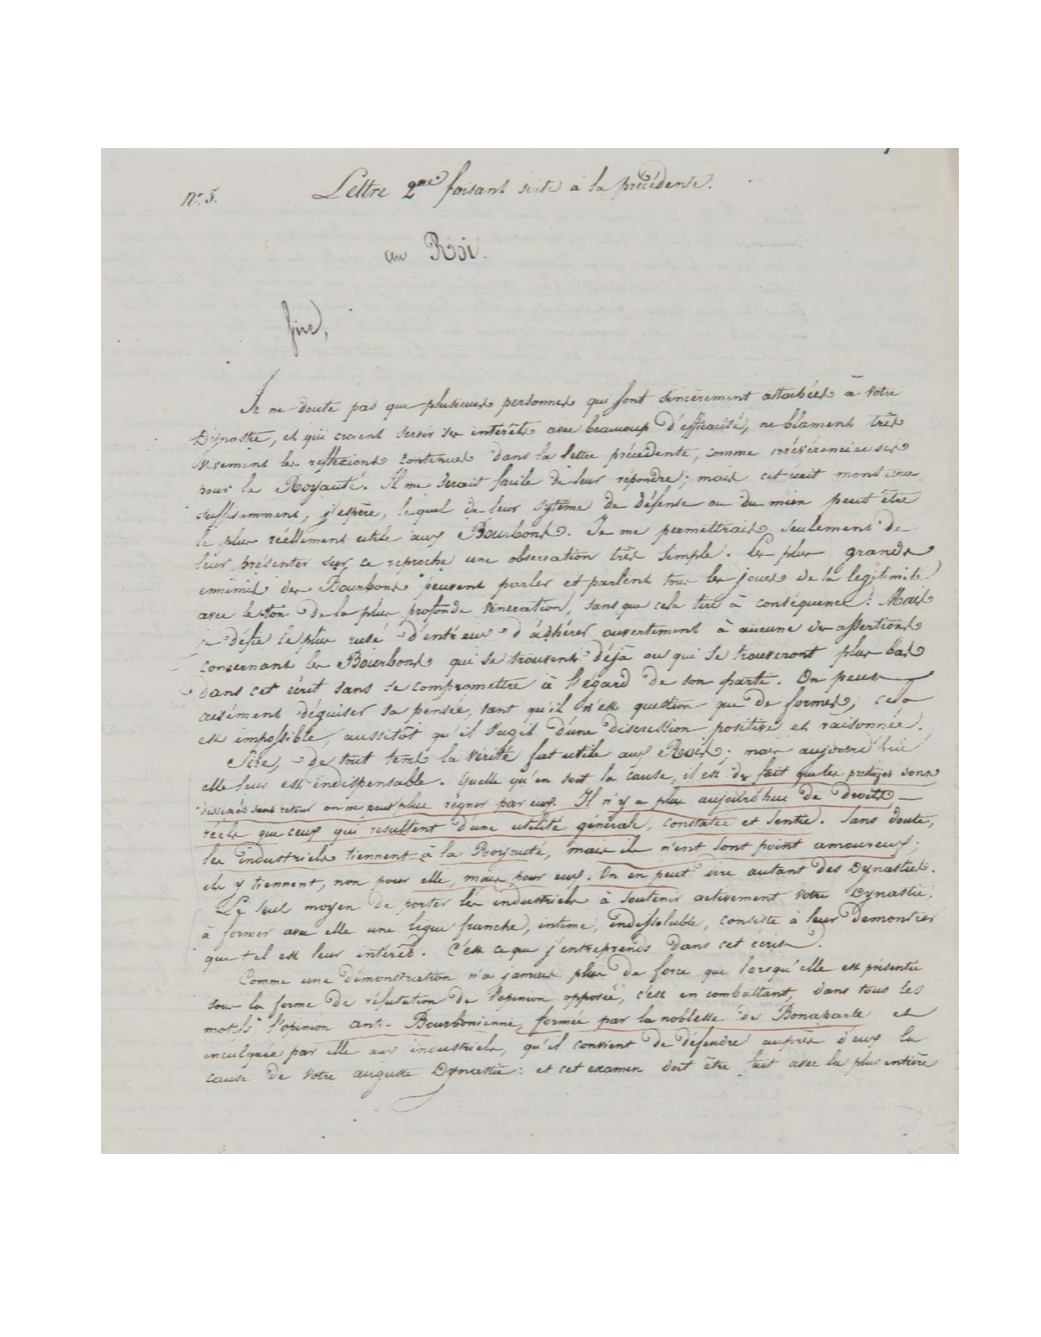 n.º 5.
Lettre 2me faisant suite à la précédente.
au Roi.
Sire,
Je ne doute pas que plusieurs personnes qui sont sincèrement attachées à votre
Dynastie, et qui croient servir ses intérêts avec beaucoup d'efficacité, ne blament très
vivement les réflexions contenues dans la lettre précédente, comme irrévérencieuses
pour la Royauté. Il me serait facile de leur répondre; mais cet écrit montrera
suffisamment, j'espère, lequel de leur sytème de défense ou du mien peut être
le plus réellement utile aux Bourbons. Je me permettrais seulement de
leur présenter sur ce reproche une observation très simple. Les plus grands
ennimis des Bourbons peuvent parler et parlent tous les jours de la légitimité
avec le ton de la plus profonde vénération, sans que cela tire à conséquence: Mais
je défie le plus rusé d'entre eux d'adhérer ouvertement à aucune des assertions
concernant les Bourbons qui se trouvent déjà ou qui se trouveront plus bas
dans cet écrit sans se compromettre à l'égard de son parti. On peut
aisément déguiser sa pensée, tant qu'il n'est question que de formes; cela
est impossible, aussitôt qu'il s'agit d'une discussion positive et raisonnée.
Sire, de tout tems la vérité fut utile aux Rois; mais aujourd'hui
elle leur est indispensable. Quelle qu'en soit la cause, il est de fait que les prestiges sont
dissipés sans retour on ne peut plus régner par eux. Il n'y a plus aujourd'hui de droits
réels que ceux qui resultent d'une utilité générale, constatée et sentie. Sans doute,
les industriels tiennent à la Royauté, mais ils n'en sont point amoureux;
ils y tiennent, non pour elle, mais pour eux. On en peut dire autant des Dynasties.
Le seul moyen de porter les industriels à soutenir activement votre Dynastie,
à former avec elle une ligue franche, intime, indissoluble, consiste à leur démontrer
que tel est leur intérêt. C'est ce que j'entreprends dans cet écrit.
Comme une démonstration n'a jamais plus de force que lorsqu'elle est présentée
sous la forme de réfutation de l'opinion opposée, c'est en combattant, dans tous les
motifs l'opinion anti-Bourbonienne, formée par la noblesse de Bonaparte et
inculquée par elle aux industriels, qu'il convient de défendre auprès d'eux la
cause de votre auguste Dynastie: et cet examen doit être fait avec la plus entière